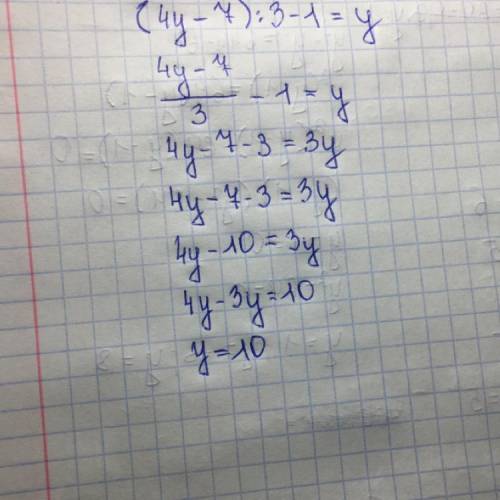 (4y-7):3-1=y
4y-7
/3 -1=y
4y-7-3=3y
4y-7-3=3y
4y-10=3y
4y-3y=10
y=10